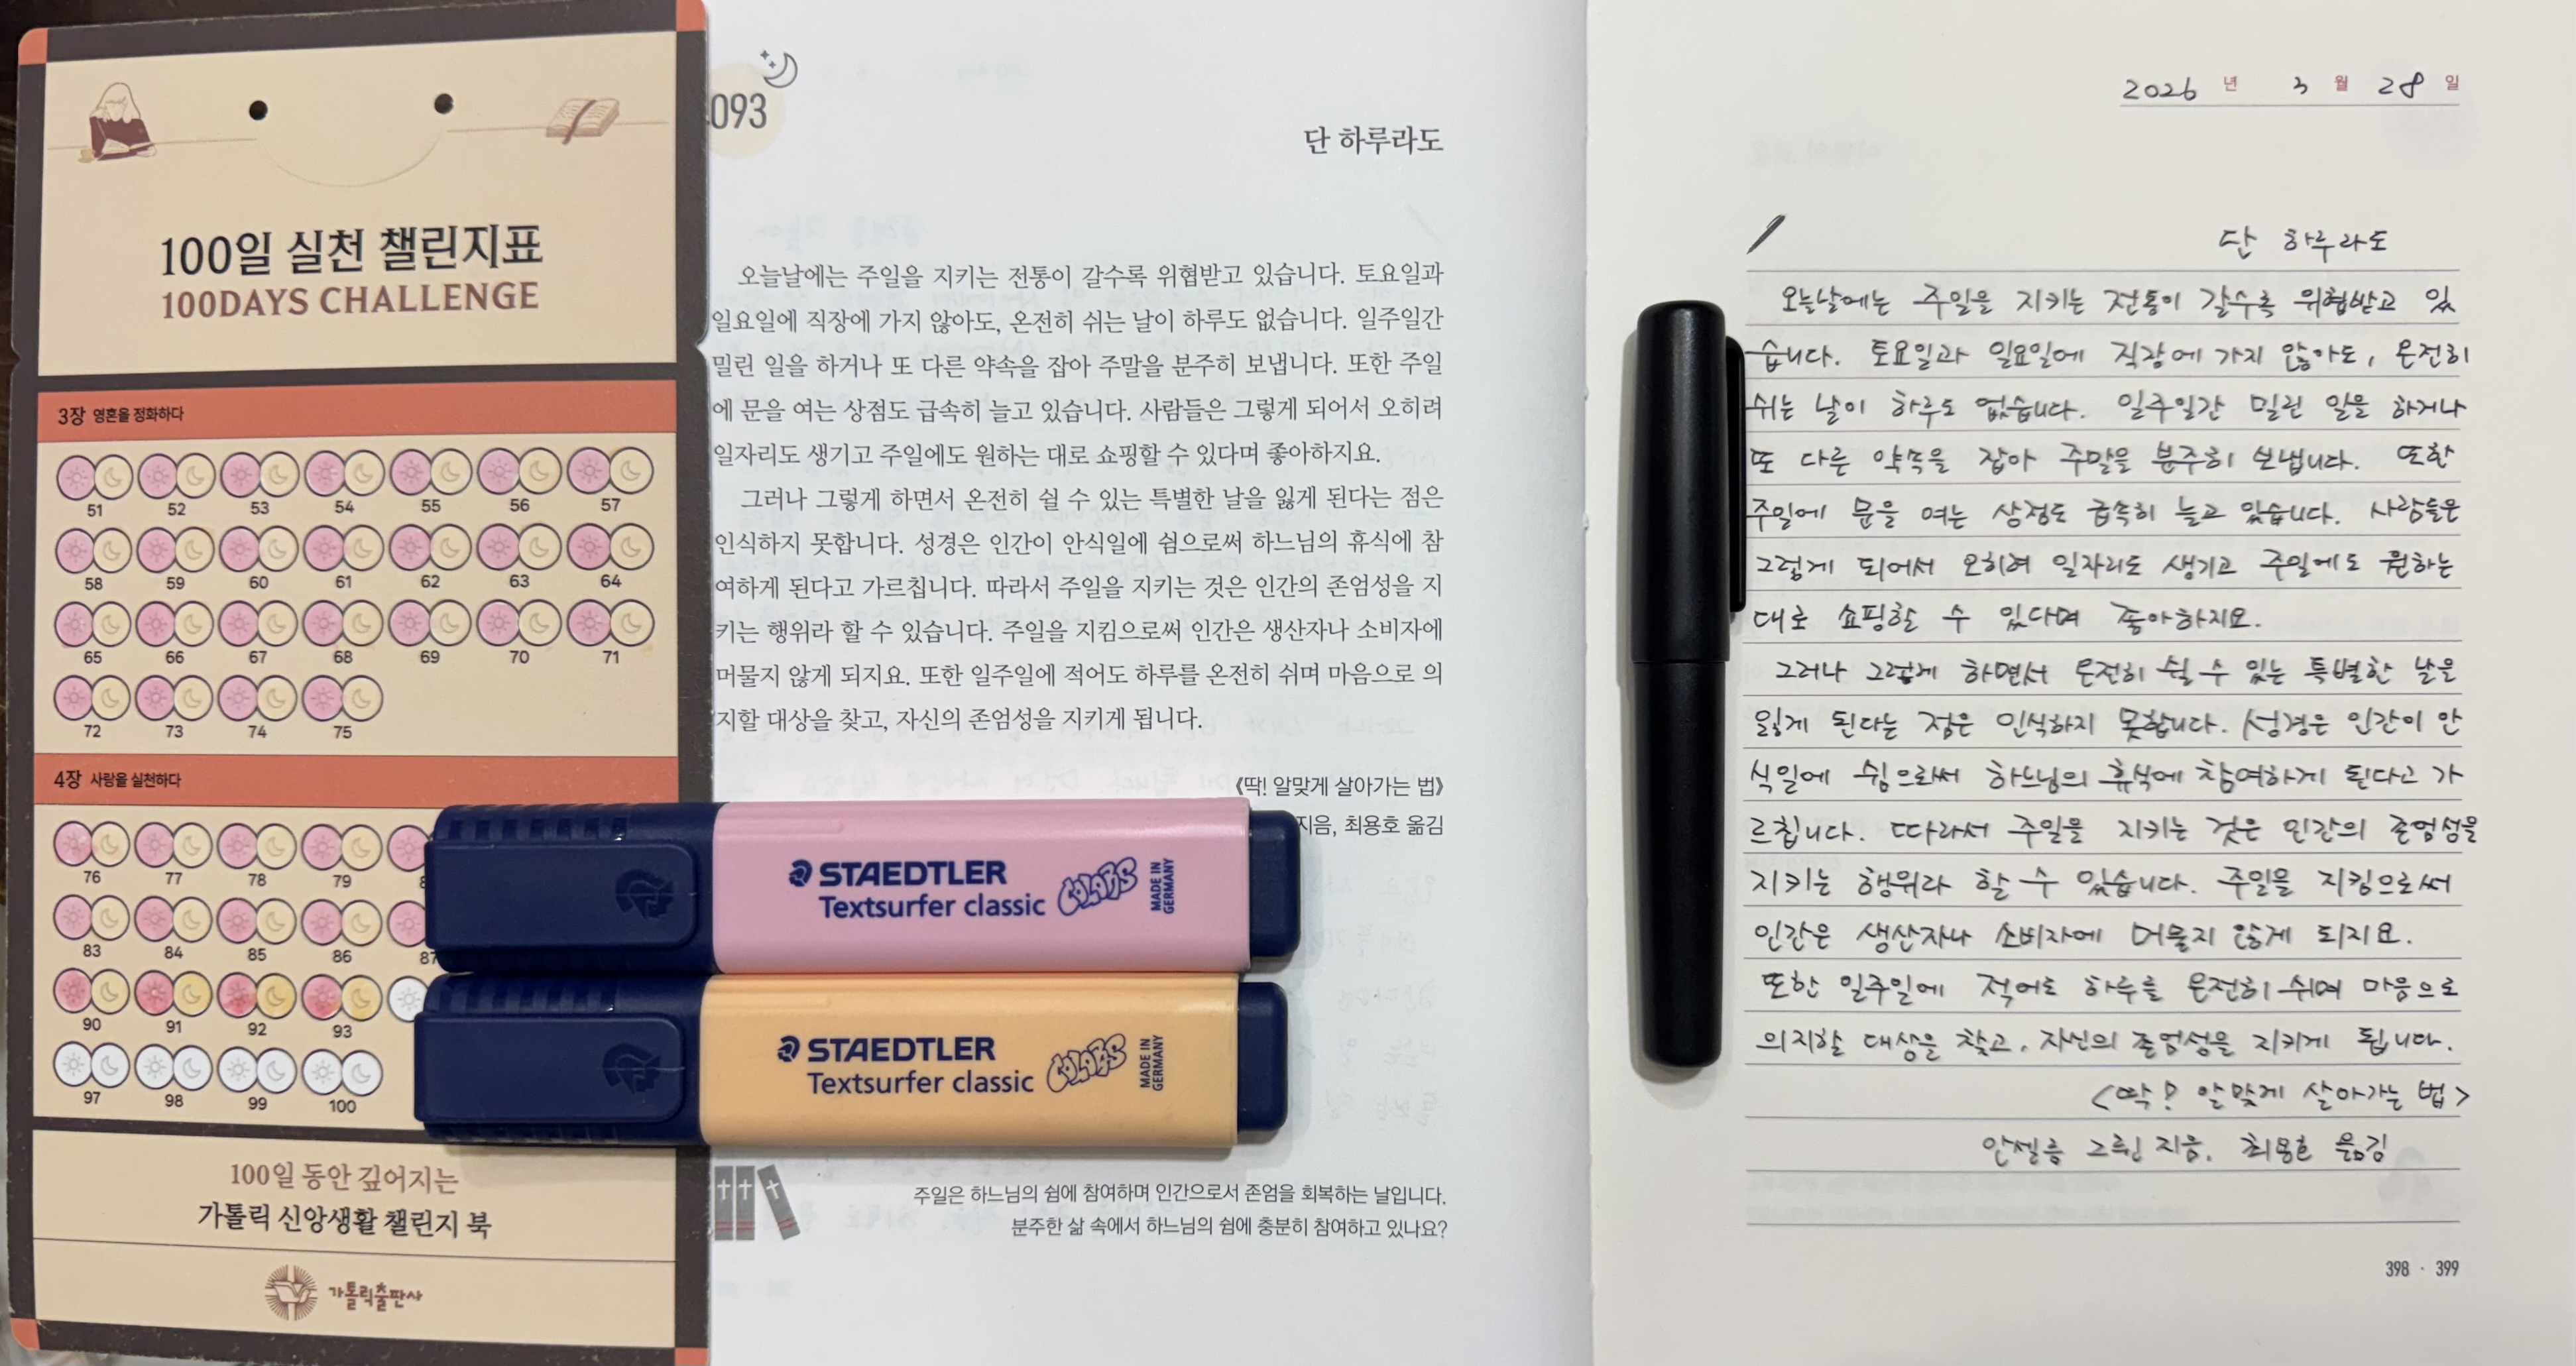 100일 실천 챌린지표
100DAYS CHALLENGE
3장 영혼을 정화하다
51 52 53 54 55 56 57
58 59 60 61 62 63 64
65 66 67 68 69 70 71
72 73 74 75
4장 사랑을 실천하다
76 77 78 79
83 84 85 86 87
90 91 92 93
97 98 99 100
100일 동안 깊어지는
가톨릭 신앙생활 챌린지 북
가톨릭출판사
093
단 하루라도
오늘날에는 주일을 지키는 전통이 갈수록 위협받고 있습니다. 토요일과
일요일에 직장에 가지 않아도, 온전히 쉬는 날이 하루도 없습니다. 일주일간
밀린 일을 하거나 또 다른 약속을 잡아 주말을 분주히 보냅니다. 또한 주일
에 문을 여는 상점도 급속히 늘고 있습니다. 사람들은 그렇게 되어서 오히려
일자리도 생기고 주일에도 원하는 대로 쇼핑할 수 있다며 좋아하지요.
그러나 그렇게 하면서 온전히 쉴 수 있는 특별한 날을 잃게 된다는 점은
인식하지 못합니다. 성경은 인간이 안식일에 쉼으로써 하느님의 휴식에 참
여하게 된다고 가르칩니다. 따라서 주일을 지키는 것은 인간의 존엄성을 지
키는 행위라 할 수 있습니다. 주일을 지킴으로써 인간은 생산자나 소비자에
머물지 않게 되지요. 또한 일주일에 적어도 하루를 온전히 쉬며 마음으로 의
지할 대상을 찾고, 자신의 존엄성을 지키게 됩니다.
《딱! 알맞게 살아가는 법》
지음, 최용호 옮김
STAEDTLER
Textsurfer classic COLORS MADE IN GERMANY
STAEDTLER
Textsurfer classic COLORS MADE IN GERMANY
주일은 하느님의 쉼에 참여하며 인간으로서 존엄을 회복하는 날입니다.
분주한 삶 속에서 하느님의 쉼에 충분히 참여하고 있나요?
2026 년 3 월 28 일
단 하루라도
오늘날에는 주일을 지키는 전통이 갈수록 위협받고 있
습니다. 토요일과 일요일에 직장에 가지 않아도, 온전히
쉬는 날이 하루도 없습니다. 일주일간 밀린 일을 하거나
또 다른 약속을 잡아 주말을 분주히 보냅니다. 또한
주일에 문을 여는 상점도 급속히 늘고 있습니다. 사람들은
그렇게 되어서 오히려 일자리도 생기고 주일에도 원하는
대로 쇼핑할 수 있다며 좋아하지요.
그러나 그렇게 하면서 온전히 쉴 수 있는 특별한 날을
잃게 된다는 점은 인식하지 못합니다. 성경은 인간이 안
식일에 쉼으로써 하느님의 휴식에 참여하게 된다고 가
르칩니다. 따라서 주일을 지키는 것은 인간의 존엄성을
지키는 행위라 할 수 있습니다. 주일을 지킴으로써
인간은 생산자나 소비자에 머물지 않게 되지요.
또한 일주일에 적어도 하루를 온전히 쉬며 마음으로
의지할 대상을 찾고, 자신의 존엄성을 지키게 됩니다.
<딱! 알맞게 살아가는 법>
안셀름 그륀 지음, 최용호 옮김
398 · 399